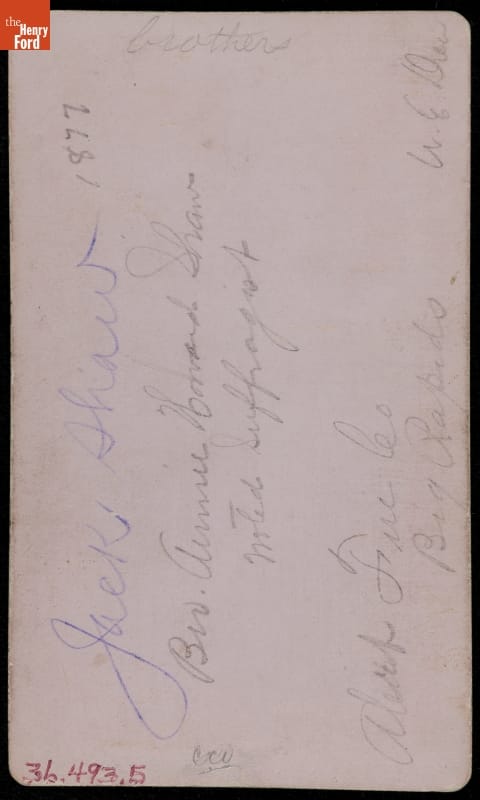 the Henry Ford
brothers
Jack Shaw 1877
Bro. Annie Howard Shaw
Noted Suffragist
Co
Big Rapids
36.493.5